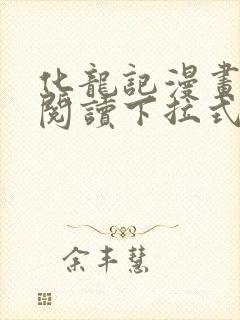 化龍記漫畫
閱讀下拉式
余丰慧